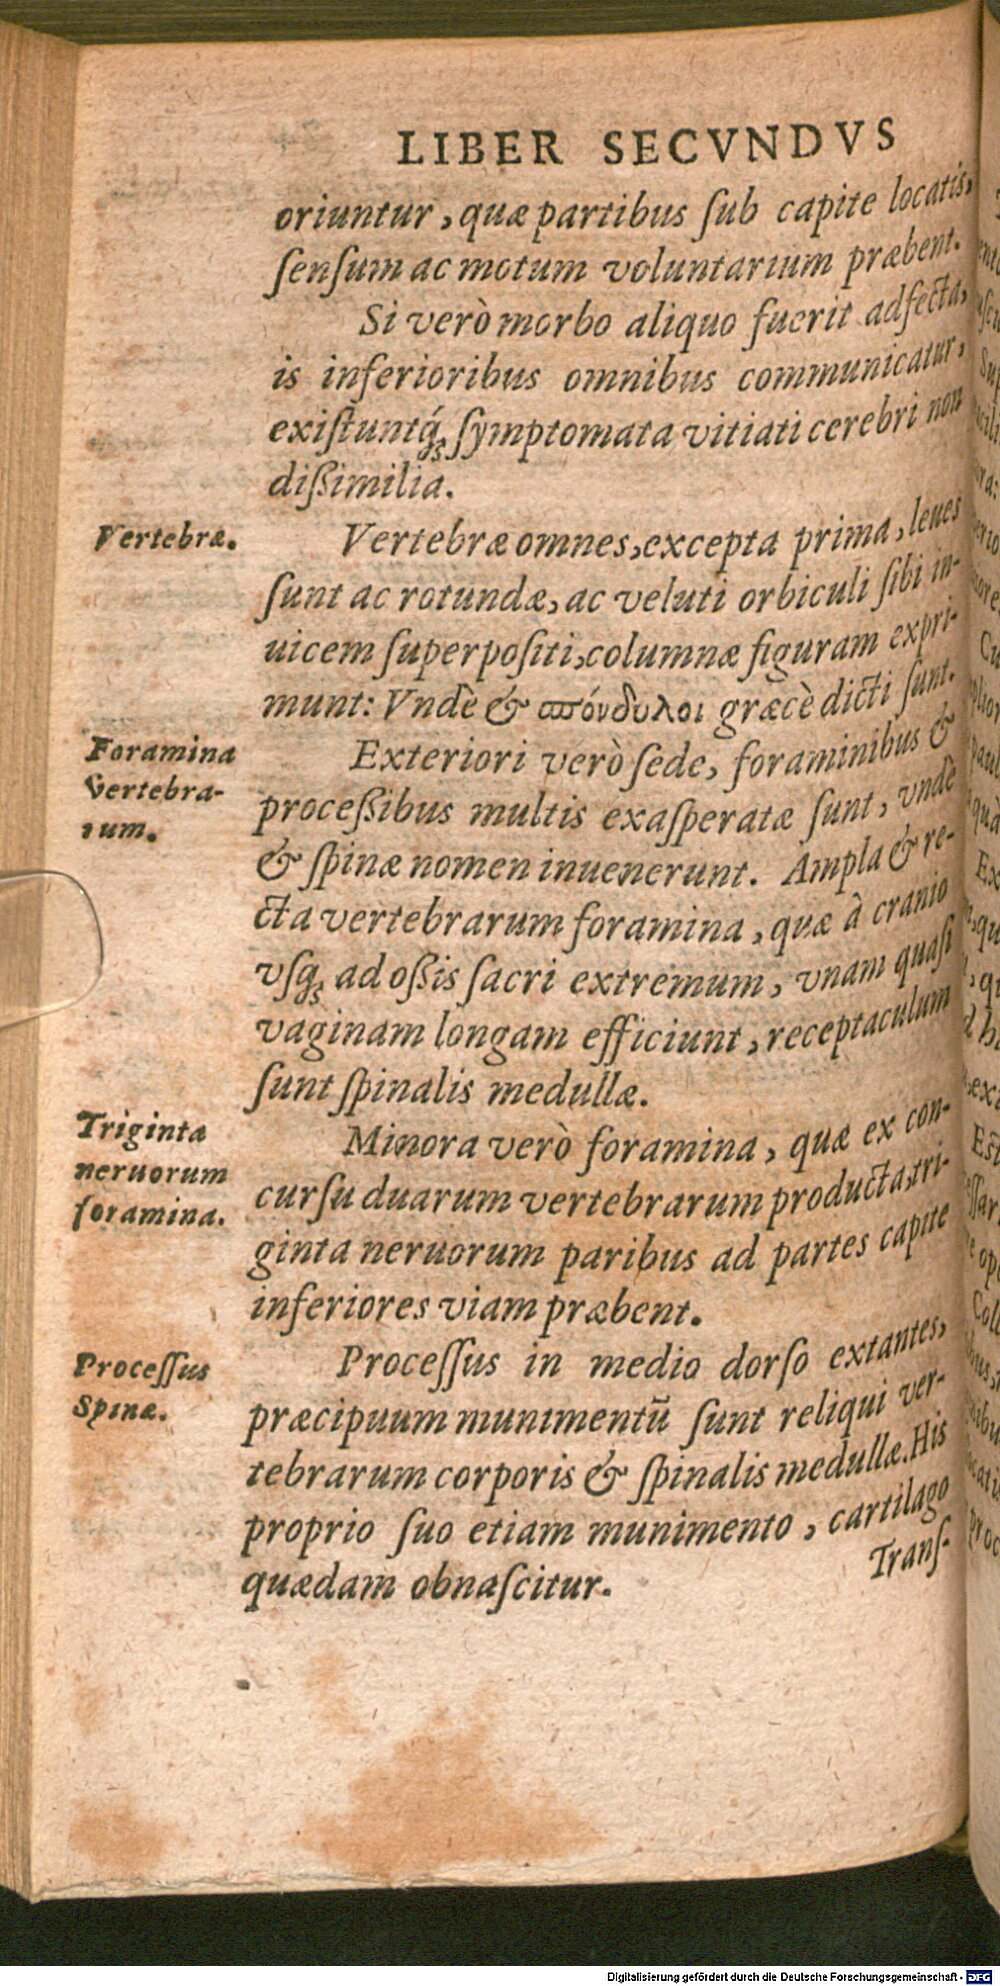 LIBER SECVNDVS
oriuntur, quæ partibus ſub capite locatis,
ſenſum ac motum voluntarium præbent.
Si verò morbo aliquo fuerit adfecta,
is inferioribus omnibus communicatur,
exiſtuntq́ꝫ ſymptomata vitiati cerebri non
dißimilia.
Vertebræ.
Vertebræ omnes, excepta prima, leues
ſunt ac rotundæ, ac veluti orbiculi ſibi in-
uicem ſuperpoſiti, columnæ figuram expri-
munt: Vndè & ϖόνδυλοι græcè dicti ſunt.
Foramina
vertebra-
rum.
Exteriori verò ſede, foraminibus &
proceßibus multis exaſperatæ ſunt, vndè
& ſpinæ nomen inuenerunt. Ampla & re-
cta vertebrarum foramina, quæ à cranio
vſqꝫ ad oßis ſacri extremum, vnam quaſi
vaginam longam efficiunt, receptaculum
ſunt ſpinalis medullæ.
Triginta
neruorum
foramina.
Minora verò foramina, quæ ex con-
curſu duarum vertebrarum producta, tri-
ginta neruorum paribus ad partes capite
inferiores viam præbent.
Proceſſus
Spinæ.
Proceſſus in medio dorſo extantes,
præcipuum munimentū ſunt reliqui ver-
tebrarum corporis & ſpinalis medullæ. His
proprio ſuo etiam munimento, cartilago
quædam obnaſcitur.
Tranſ-
Digitalisierung gefördert durch die Deutsche Forschungsgemeinschaft - DFG